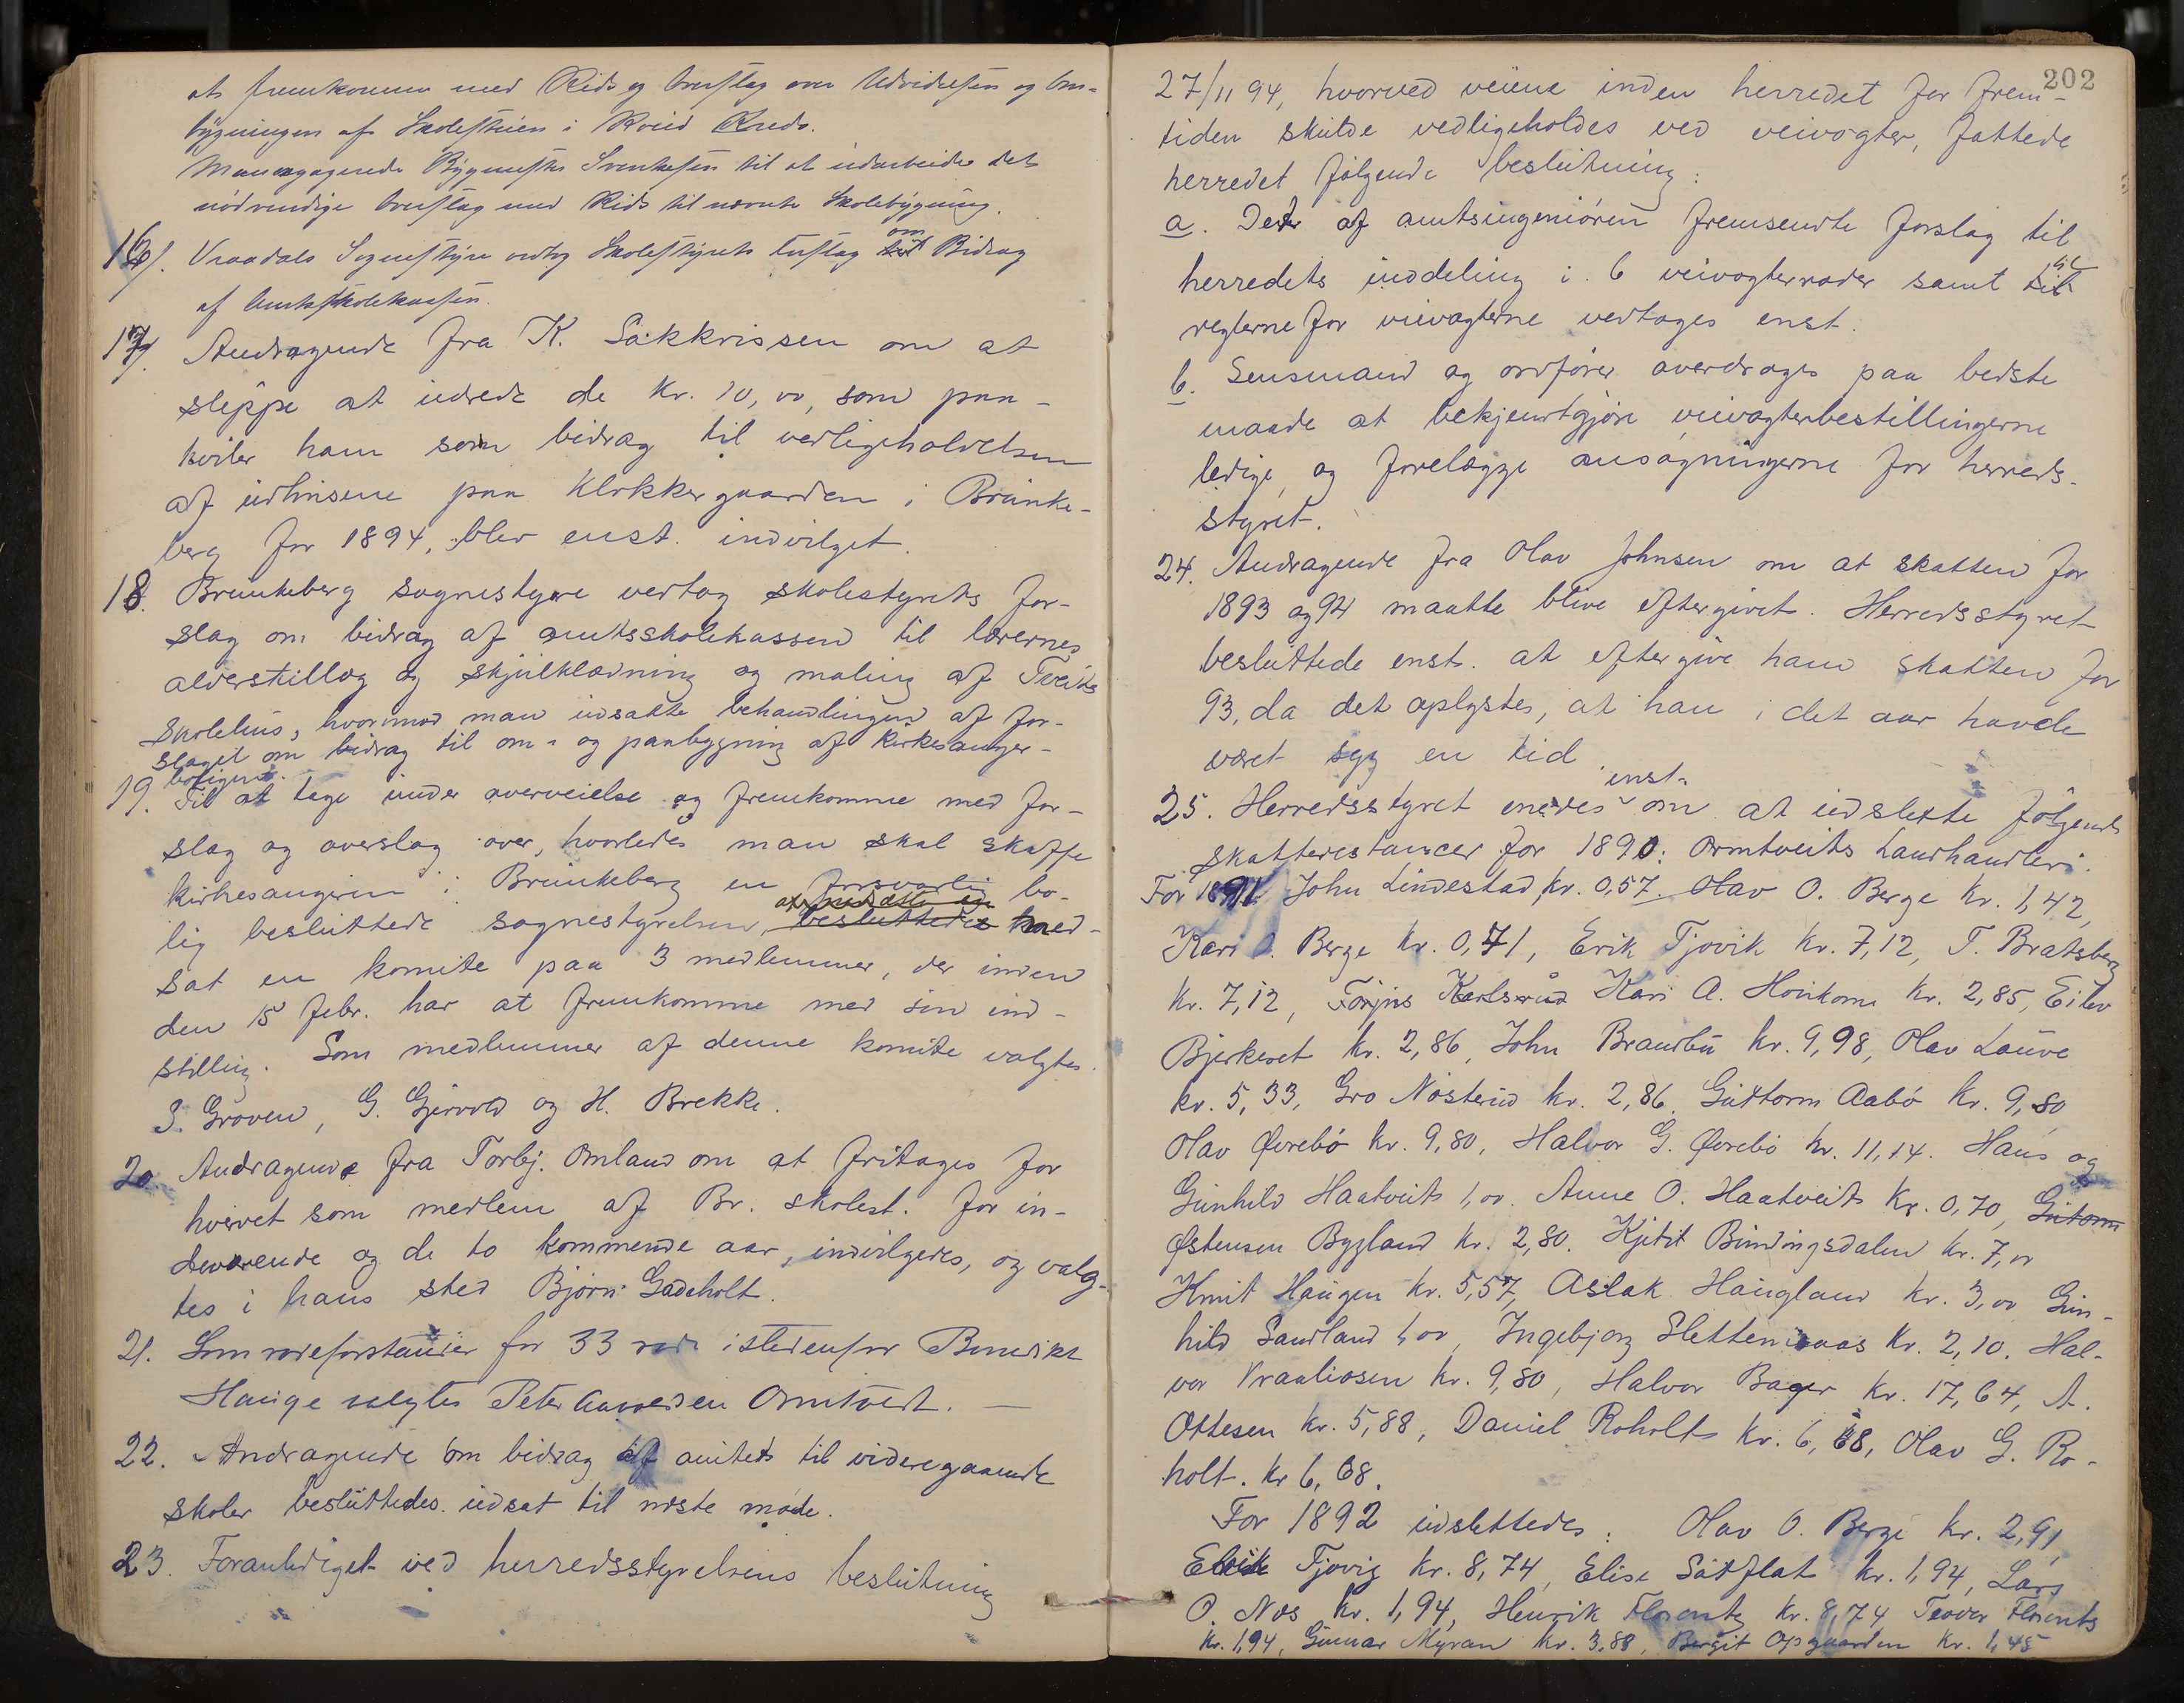 at fremkomme med Rids og Overslag over Udvidelsen og Om-
bygningen af Skolestuen i Kvid Kreds.
Man engagerede Bygmester Svenkesen til at udarbeide det
nödvendige Overslag med Rids til nævnte Skolebygning.
16/. Vraadals Sognestyre vedtog Skolestyrets Forslag om Bidrag
af Amtsskolekassen.
17/. Andragende fra K. Sakkrissen om at
sleppe at udrede de Kr. 10,00, som paa-
hviler ham som bidrag til vedligeholdelsen
af udhusene paa Klokkergaarden i Brunke-
berg for 1894, blev enst. indvilget.
18. Brunkeberg sognestyre vedtog skolestyrets for-
slag om bidrag af amtsskolekassen til lærernes
alderstillæg og skjulklædning og maling af Tveits
Skolehus, hvorimod man udsatte behandlingen af for-
slaget om bidrag til om- og paabygning af kirkesanger-
boligen.
19. Til at tage under overveielse og fremkomme med for-
slag og overslag over, hvorledes man skal skaffe
kirkesangeren i Brunkeberg en forsvarlig bo-
lig besluttede sognestyrelsen, besluttedes ned-
sat en komite paa 3 medlemmer, der inden
den 15 febr. har at fremkomme med sin ind-
stilling. Som medlemmer af denne komite valgtes
S. Groven, G. Gjervold og H. Brekke.
20. Andragende fra Torbj. Omland om at fritages for
hvervet som medlem af Br. skolest. for in-
deværende og de to kommende aar, indvilgedes, og valg-
tes i hans sted Bjørn Gadeholt.
21. Som rodeforstander for 33 rode istedenfor Benedikt
Hauge valgtes Peter Aavoldsen Omtveit. —
22. Andragende om bidrag af amtets til videregaaende
skoler besluttedes udsat til næste møde.
23. Foranlediget ved herredsstyrelsens beslutning
202
27/11 94, hvorved veiene inden herredet for frem-
tiden skulde vedligeholdes ved veivogter, fattede
herredet følgende beslutning:
a. Det af amtsingeniøren fremsendte forslag til
herredets inddeling i 6 veivogterroder samt til
reglerne for veivogterne vedtages enst.
b. Lensmand og ordfører overdrages paa bedste
maade at bekjendtgjøre veivogterbestillingerne
ledige, og forelægge ansøgningerne for herreds-
styret.
24. Andragende fra Olav Johnsen om at skatten for
1893 og 94 maatte blive eftergivet. Herredsstyret
besluttede enst. at eftergive ham skatten for
93, da det oplystes, at han i det aar havde
været syg en tid
25. Herredsstyret enedes enst. om at udslette følgende
skatterestancer for 1890: Omtveits Landhandleri.
For 1891 John Lindestad, kr. 0,57. Olav O. Berge kr. 1,42,
Kari O. Berge kr. 0,71, Erik Tjovik kr. 7,12, T. Bratsberg
kr. 7,12, Torjus Karlsrud Kari A. Hovikome kr. 2,85, Eilev
Bjerkeset kr. 2,86, John Brandbu kr. 9,98, Olav Lauve
kr. 5,33, Gro Nøsterud kr. 2,86, Guttorm Aabø kr. 9,80
Olav Øvrebø kr. 9,80, Halvor G. Øvrebø kr. 11,14. Hans og
Gunhild Haatveits 1,00. Anne O. Haatveits kr. 0,70, Gutorm
Østensen Bygland kr. 2,80. Kjetil Bindingsdalen kr. 7,00
Knut Haugen kr. 5,57, Aslak Haugland kr. 3,00 Gun-
hild Sandland 1,00, Ingebjørg Slettemoaas kr. 2,10. Hal-
vor Vraaliosen kr. 9,80, Halvor Bager kr. 17,64, A.
Ottesen kr. 5,88, Daniel Roholt kr. 6,68, Olav G. Ro-
holt. kr 6,68.
For 1892 udslettedes: Olav O. Berge kr. 2,91,
Erik Tjovig kr. 8,74, Elise Satflat kr. 1,94, Lars
O. Næs kr. 1,94, Henrik Florentz kr. 8,74 Teodor Florents
kr. 1,94, Gunnar Myran kr. 3,88, Bergit Opgaarden kr. 1,45